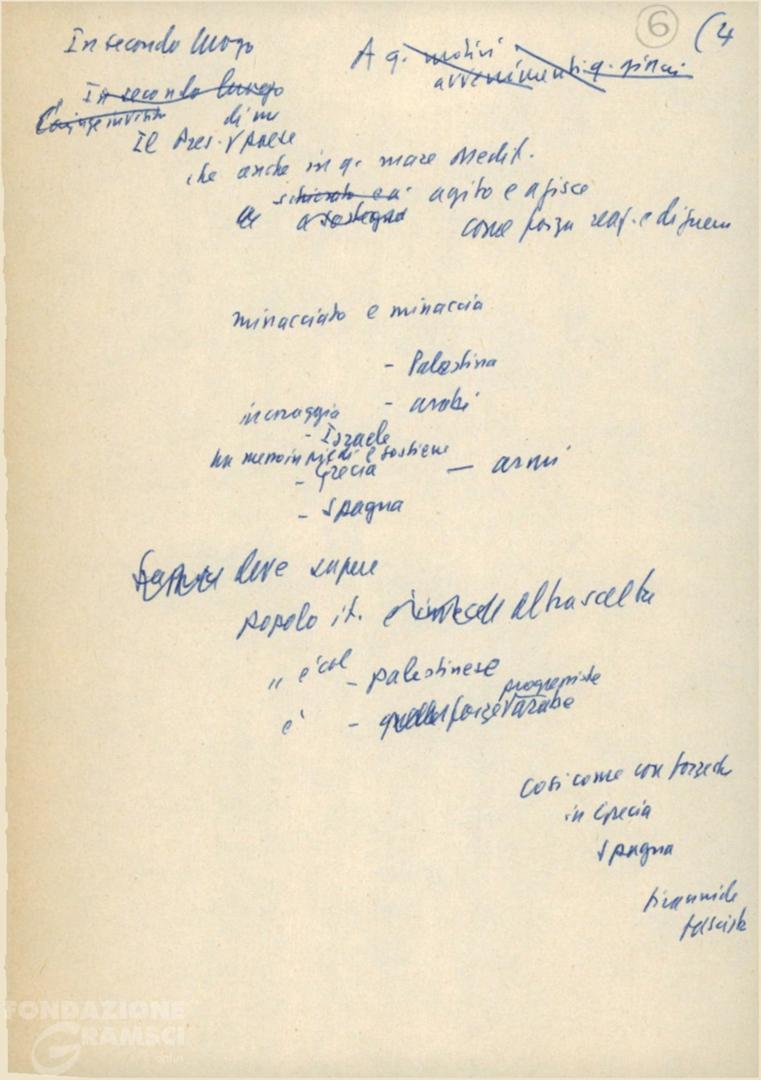 6 (4
In secondo luogo
A q. motivi
avvenimenti q. rinvi
In secondo luogo
di un
Il Pres. Paese
che anche in q. mare Medit.
schierato e a agito e agisce
a sostegno come forza reaz. e di guerra
minacciato e minaccia
- Palestina
incoraggia - arabi
- Israele
ha messo in piedi e sostiene
- Grecia — armi
- Spagna
deve sapere
popolo it. altra scelta
" è col - palestinese
progressiste
è - quelle forze arabe
Così come con forze
in Grecia
Spagna
tirannide
fascista
FONDAZIONE
GRAMSCI